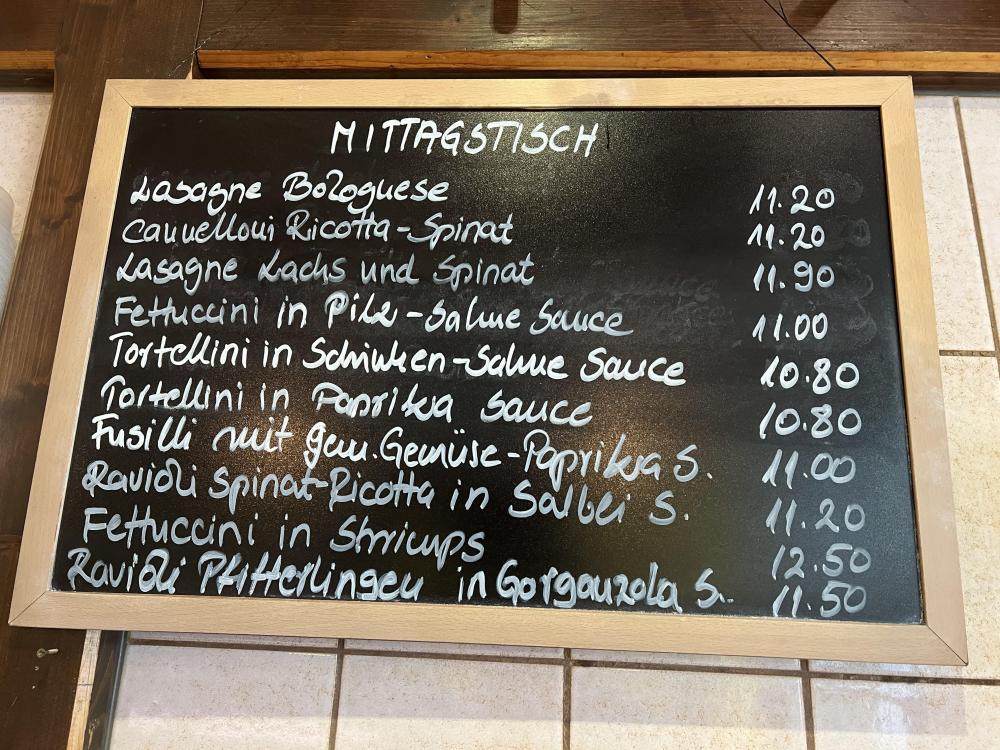 MITTAGSTISCH
Lasagne Bolognese 11.20
Cannelloni Ricotta-Spinat 11.20
Lasagne Lachs und Spinat 11.90
Fettuccini in Pilz-Sahne Sauce 11.00
Tortellini in Schinken-Sahne Sauce 10.80
Tortellini in Paprika Sauce 10.80
Fusilli mit gem. Gemüse-Paprika S. 11.00
Ravioli Spinat-Ricotta in Salbei S. 11.20
Fettuccini in Shrimps 12.50
Ravioli Pfifferlingen in Gorgonzola S. 11.50